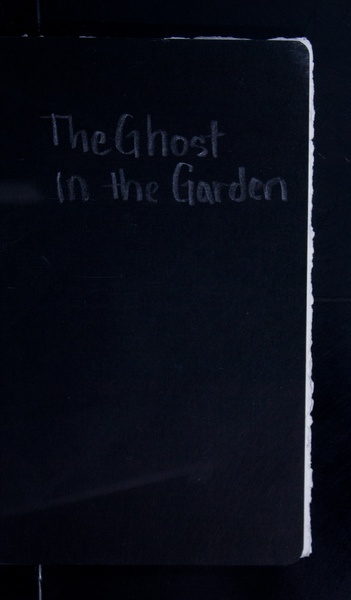 The Ghost
in the Garden